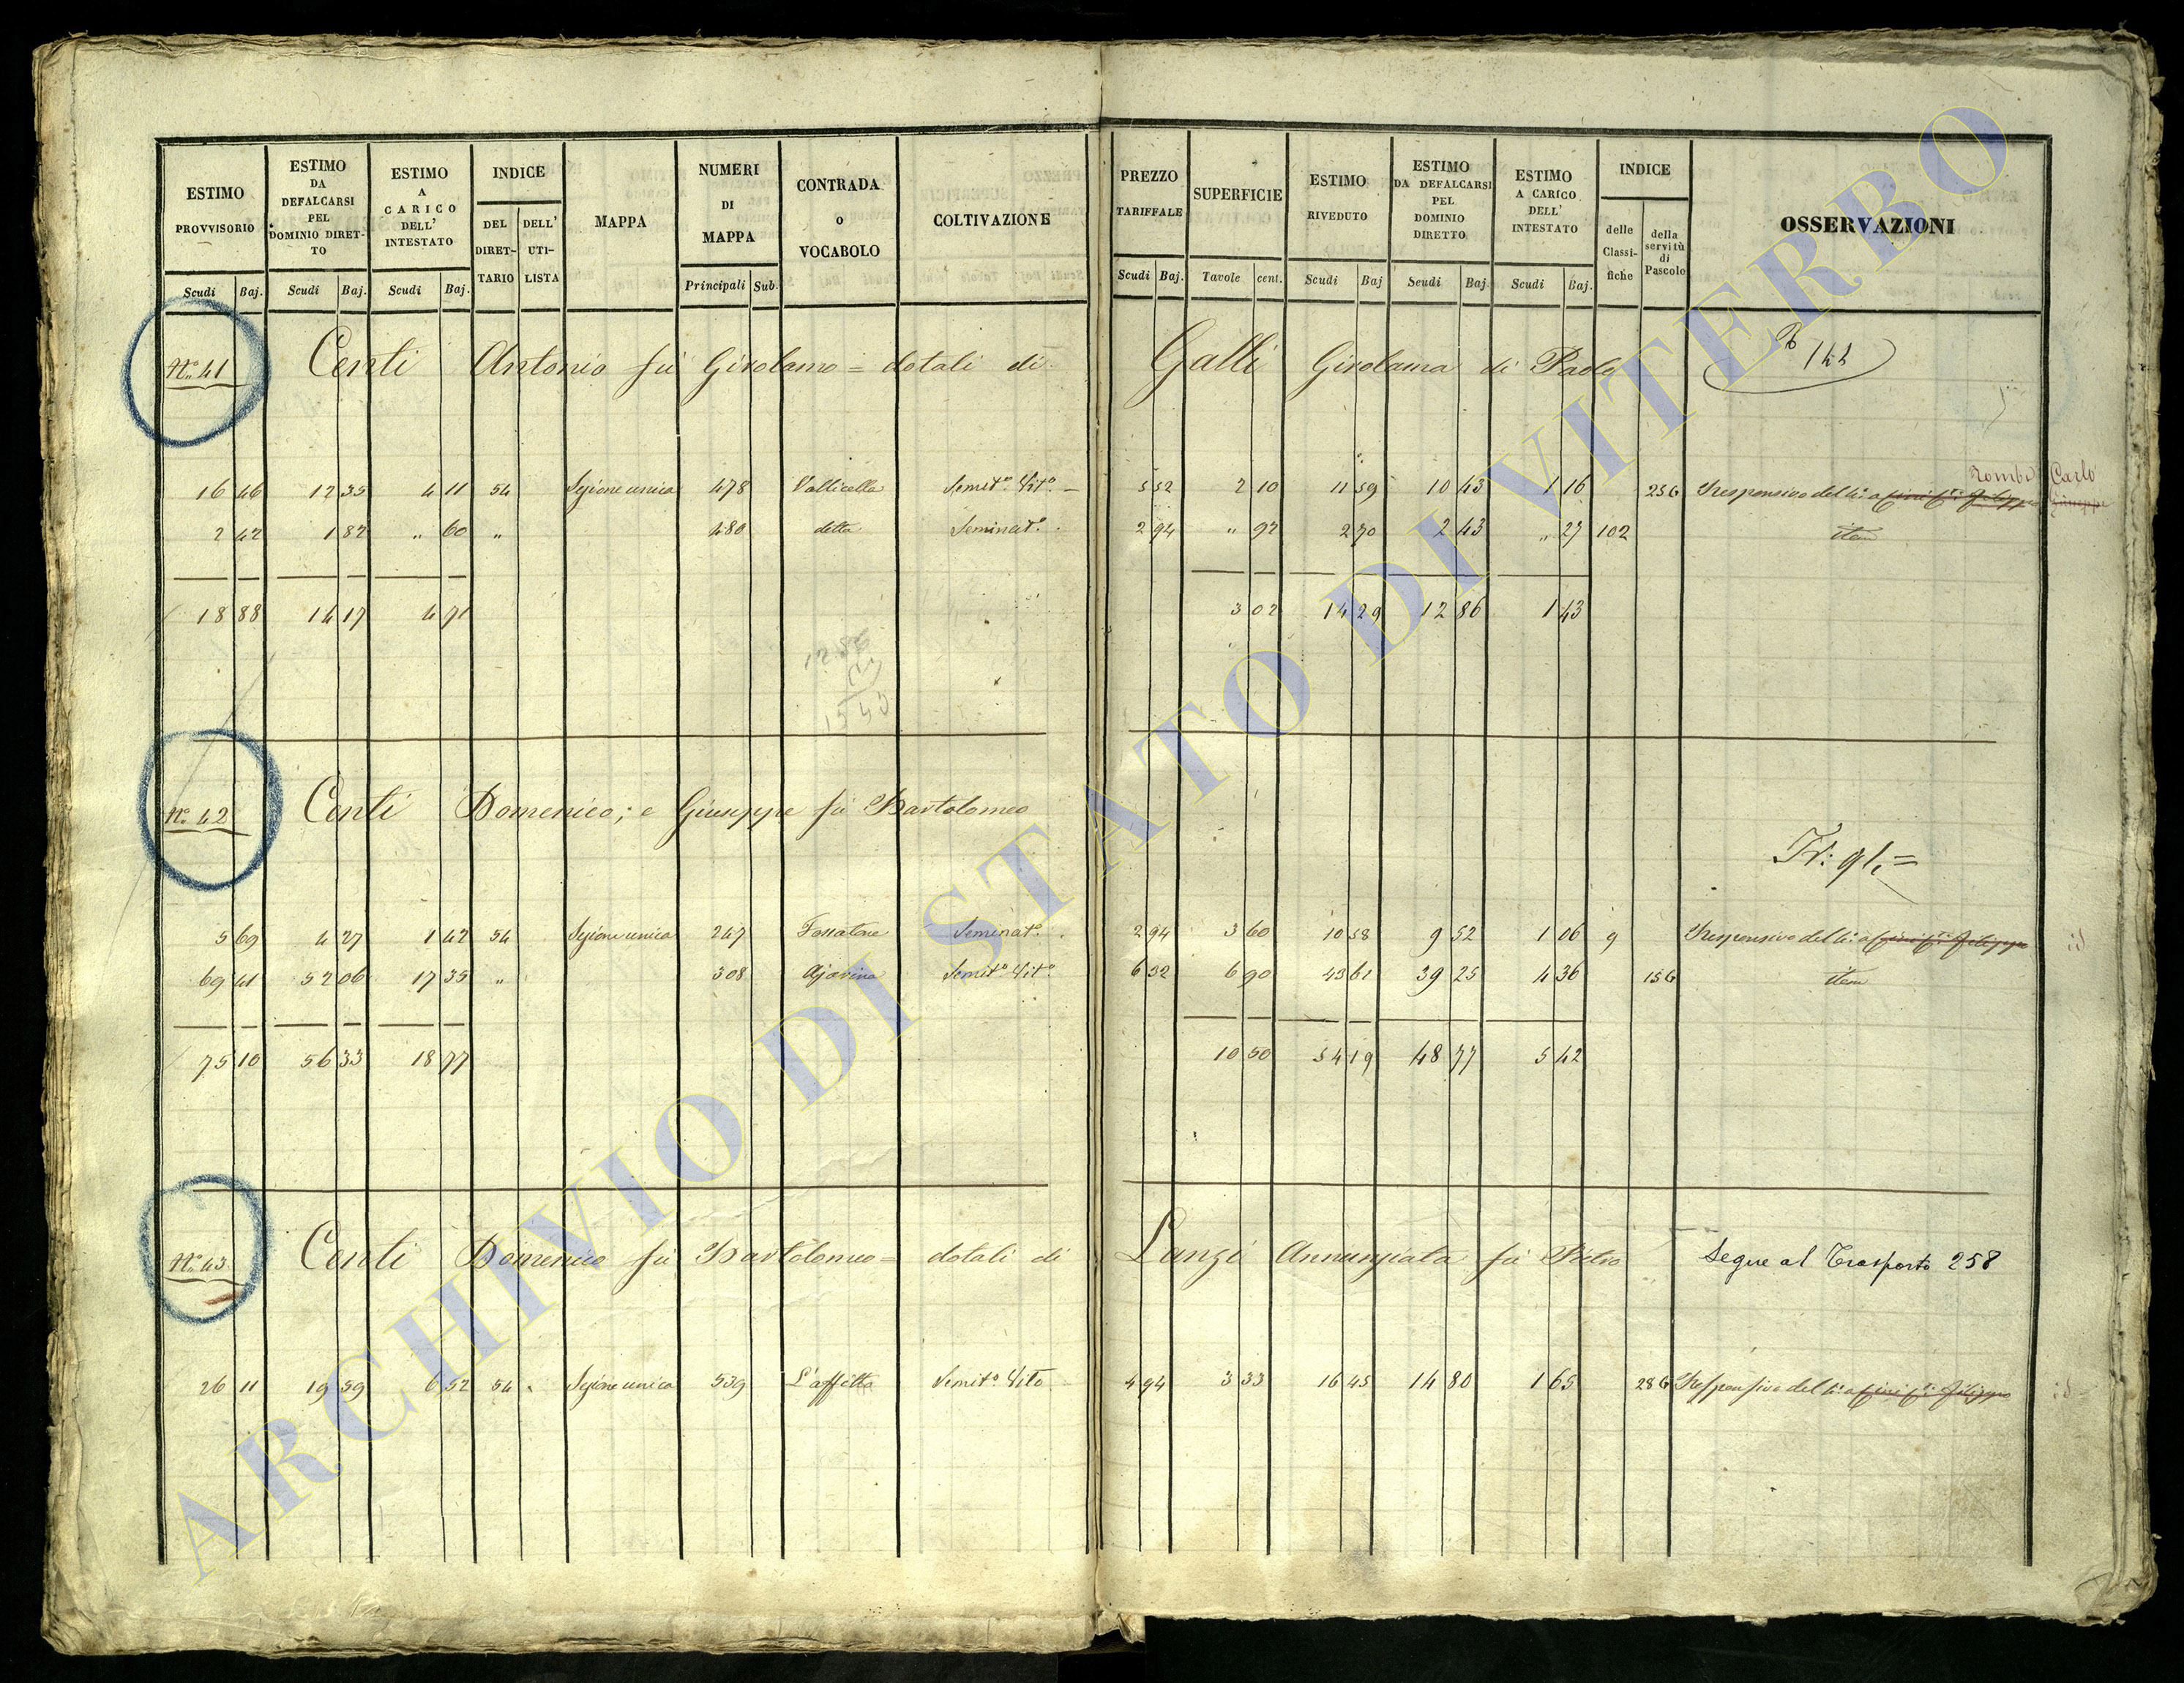 ESTIMO PROVVISORIO Scudi Baj.
ESTIMO DA DEFALCARSI PEL DOMINIO DIRETTO Scudi Baj.
ESTIMO A CARICO DELL' INTESTATO Scudi Baj.
INDICE DEL DIRETTARIO DELL' UTILISTA
MAPPA
NUMERI DI MAPPA Principali Sub.
CONTRADA o VOCABOLO
COLTIVAZIONE
PREZZO TARIFFALE Scudi Baj.
SUPERFICIE Tavole cent.
ESTIMO RIVEDUTO Scudi Baj
ESTIMO DA DEFALCARSI PEL DOMINIO DIRETTO Scudi Baj.
ESTIMO A CARICO DELL' INTESTATO Scudi Baj.
INDICE delle Classifiche della servitù di Pascolo
OSSERVAZIONI
N.° 41 Centi Antonio fù Girolamo = dotali di Galli Girolama di Paolo 144
Zombi Carlo
16 46 12 35 4 11 54 Sezione unica 478 Vallicella Semit.° Vit.° 5 52 2 10 11 59 10 43 1 16 25G Responsivo del 4.° a Giuseppe
2 42 1 82 " 60 " 480 detta Seminat.° 2 94 " 92 2 70 2 43 " 27 102 item
18 88 14 17 4 71 3 02 14 29 12 86 1 43
N.° 42 Centi Domenico; e Giuseppe fù Bartolomeo
Tr: 91,=
5 69 4 27 1 42 54 Sezione unica 247 Fossatone Seminat.° 2 94 3 60 10 58 9 52 1 06 9 Responsivo del 4.° a id
69 41 52 06 17 35 " 308 Ajovina Semit.° Vit.° 6 32 6 90 43 61 39 25 4 36 15G item
75 10 56 33 18 77 10 50 54 19 48 77 5 42
N.° 43 Centi Domenico fù Bartolomeo = dotali di Lanzi Annunziata fù Pietro Segue al Trasporto 258
26 11 19 59 6 52 54 Sezione unica 539 L'affitto Semit.° Vito 4 94 3 33 16 45 14 80 1 65 28G Responsivo del 4.° a id
ARCHIVIO DI STATO DI VITERBO